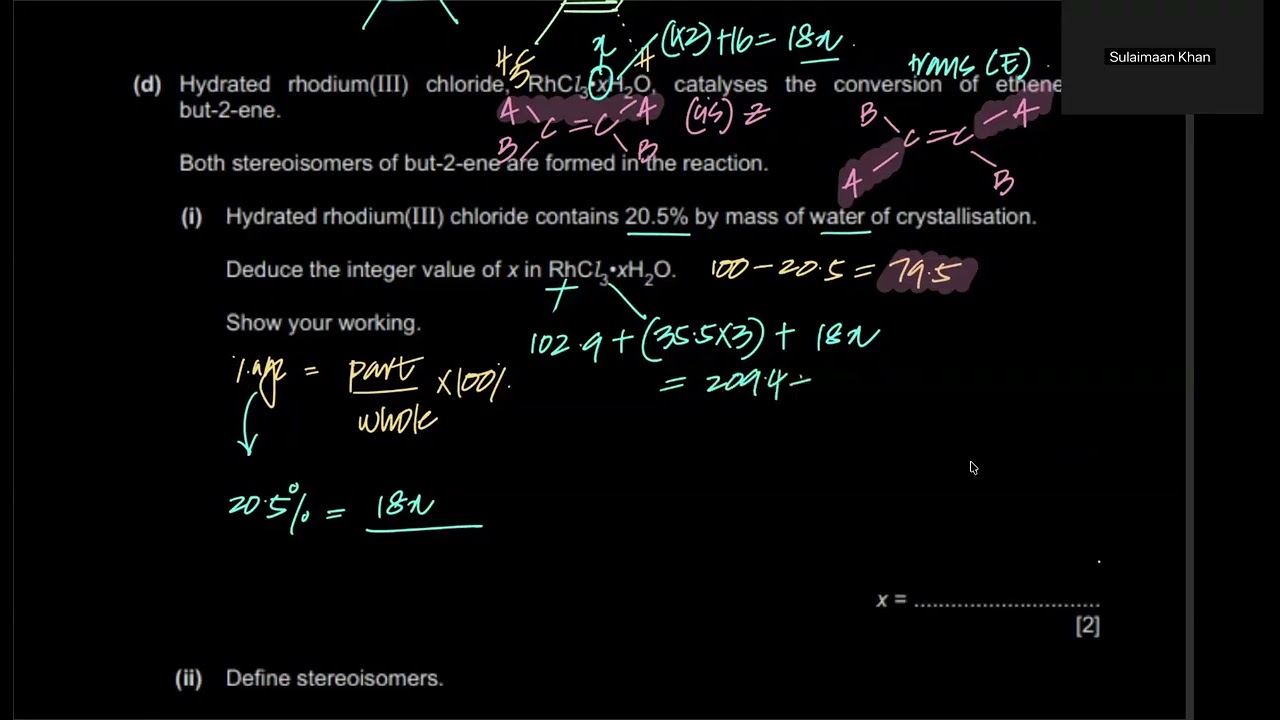 (1x2)+16 = 18x
x
H
H
5
trans (E)
Sulaimaan Khan
(d) Hydrated rhodium(III) chloride, RhCl3•xH2O, catalyses the conversion of ethene
but-2-ene.
A A
C = C
B B
(cis) Z
B A
C = C
A B
Both stereoisomers of but-2-ene are formed in the reaction.
(i) Hydrated rhodium(III) chloride contains 20.5% by mass of water of crystallisation.
Deduce the integer value of x in RhCl3•xH2O.
100 - 20.5 = 79.5
Show your working.
102.9 + (35.5x3) + 18x
= 209.4 -
%age = part x100%
whole
20.5% = 18x
x = ..............................
[2]
(ii) Define stereoisomers.